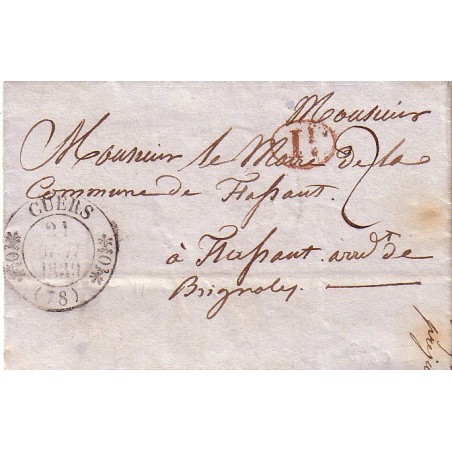 Monsieur
Monsieur le Maire de la
Commune de Flassant.
à Flassant arrdt. de
Brignoles.
2
CUERS
21
(78)